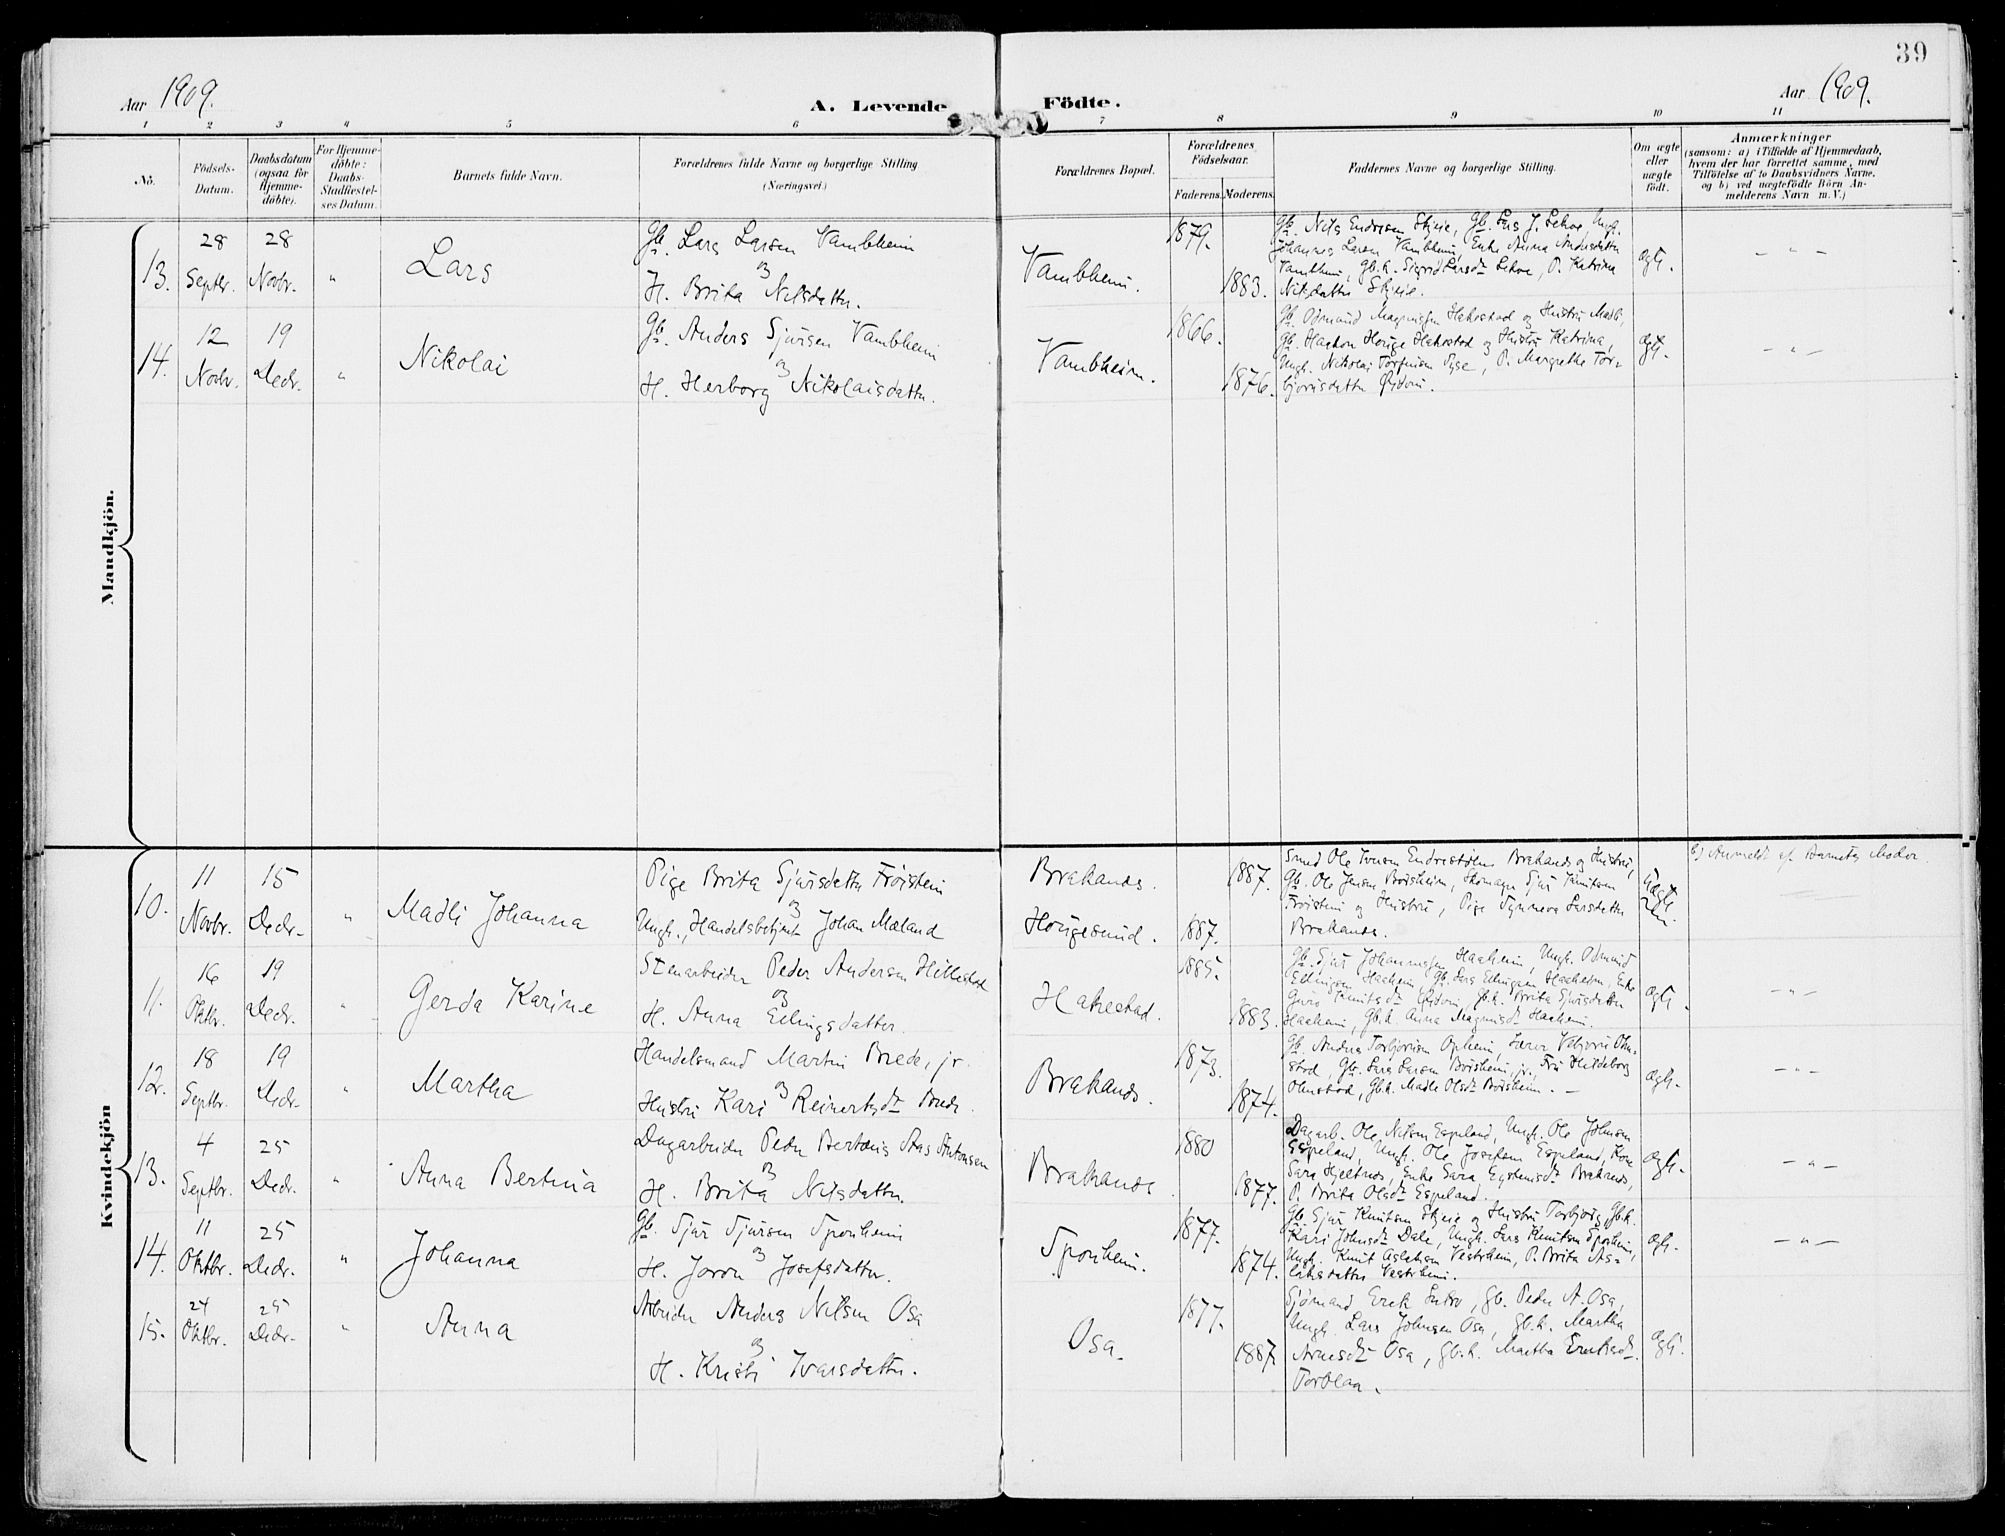 39
Aar 1909.
A. Levende Födte.
Aar 1909.
1 2 3 4 5 6 7 8 9 10 11
No.
Födsels-Datum.
Daabsdatum (ogsaa for Hjemme-döbte).
For Hjemme-döbte: Daabs-Stadfæstel-ses Datum.
Barnets fulde Navn.
Forældrenes fulde Navne og borgerlige Stilling
(Næringsvei.)
Forældrenes Bopæl.
Forældrenes Födselsaar.
Faderens. Moderens.
Faddernes Navne og borgerlige Stilling.
Om ægte eller uægte födt.
Anmærkninger
(saasom: a) i Tilfælde af Hjemmedaab,
hvem der har forrettet samme, med
Tilföielse af to Daabsvidners Navne,
og b) ved uægtefödte Börn An-
melderens Navn m. V.)
Mandkjön.
13. 28 Septbr. 28 Novbr. " Lars
Gb. Lars Larsen Vambheim
og
H. Brita Nilsdatter.
Vambheim. 1879. 1883.
Gb. Nils Endresen Skjeie, Gb. Lars J. Sekse, Ungk.
Johannes Larsen Vambheim, Enke Anna Andersdatter
Vambheim, Gb.k. Sigrid Larsdt Sekse, P. Katrina
Nilsdatter Skjeie.
ægte. — " —
14. 12 Novbr. 19 Decbr. " Nikolai
Gb. Anders Sjursen Vambheim
og
H. Herborg Nikolaisdatter.
Vambheim. 1866. 1876.
Gb. Odmund Magnusen Hakestad og Hustru Madli,
Gb. Haakon Hakestad og Hustru Katrina,
Ungk. Nikolai Torfinsen Syse, P. Margretha Tor-
bjørnsdatter
ægte. — " —
Kvindekjön
10. 11 Novbr. 15 Decbr. " Madli Johanna
Pige Brita Sjursdatter Frøistein
og
Ungk., Handelsbetjent Johan Mæland
Brakanes. 1887.
Hougesund. 1887.
Smed Ole Ivarsen Brakanes og Hustru,
Gb. Ole Jensen Børsheim, Skomager Sjur Knutsen
Frøistein og Hustru, Pige Synneva Larsdatter
Brakanes.
Uægte
b) Anmeldt af Barnets Moder.
11. 16 Oktbr. 19 Decbr. " Gerda Karine
Stenarbeider Peder Andersen Hillestad
og
H. Anna Ellingsdatter.
Hakestad. 1885. 1883.
Gb. Sjur Johannesen Haaheim, Ungk. Odmund
Ellingsen Haaheim, Gb. Lars Ellingsen Haaheim, Enke
Guro Knutsdt Gb.k. Brita Sjursdatter
Haaheim, Gb.k. Anna Magnusdt Haaheim.
ægte. — " —
12. 18 Septbr. 19 Decbr. " Martha
Handelsmand Martin Brede, jr.
og
Hustru Kari Reinertsdt Brede.
Brakanes. 1873. 1874.
Gb. Anders Torbjørnsen Opheim, Lærer Olm-
stad, Gb. Lars Larsen Børsheim, jr., Fru Hildeborg
Olmstad, Gb.k. Madli Olsdt Børsheim. —
ægte. — " —
13. 4 Septbr. 25 Decbr. " Anna Bertina
Dagarbeider Peder Bertinus Aas Antonsen
og
H. Brita Nilsdatter.
Brakanes 1880 1877.
Dagarb. Ole Nilsen Espeland, Ungk. Ole Johnsen
Espeland, Ungk. Ole Josefsen Espeland, Kone
Sara Hjeltnes, Enke Sara Eystensdt Brakanes,
P. Brita Olsdt Espeland.
ægte. — " —
14. 11 Oktbr. 25 Decbr. " Johanna
Gb. Sjur Sjursen Sponheim
og
H. Joron Josefsdatter.
Sponheim. 1877. 1874.
Gb. Sjur Knutsen Skjeie og Hustru Torbjørg, Gb.k.
Kari Johnsdt Dale, Ungk. Lars Knutsen Sponheim,
Ungk. Knut Aslaksen Vestrheim, P. Brita As-
laksdatter Vestrheim.
ægte. — " —
15. 24 Oktbr. 25 Decbr. " Anna
Arbeider Anders Nilsen Osa
og
H. Kristi Ivarsdatter.
Osa. 1877. 1887.
Sjømand Erik Gb. Peder A. Osa,
Ungk. Lars Johnsen Osa, Gb.k. Martha
Arnesdt Osa, Gb.k. Martha Eriksdt
Torblaa.
ægte.